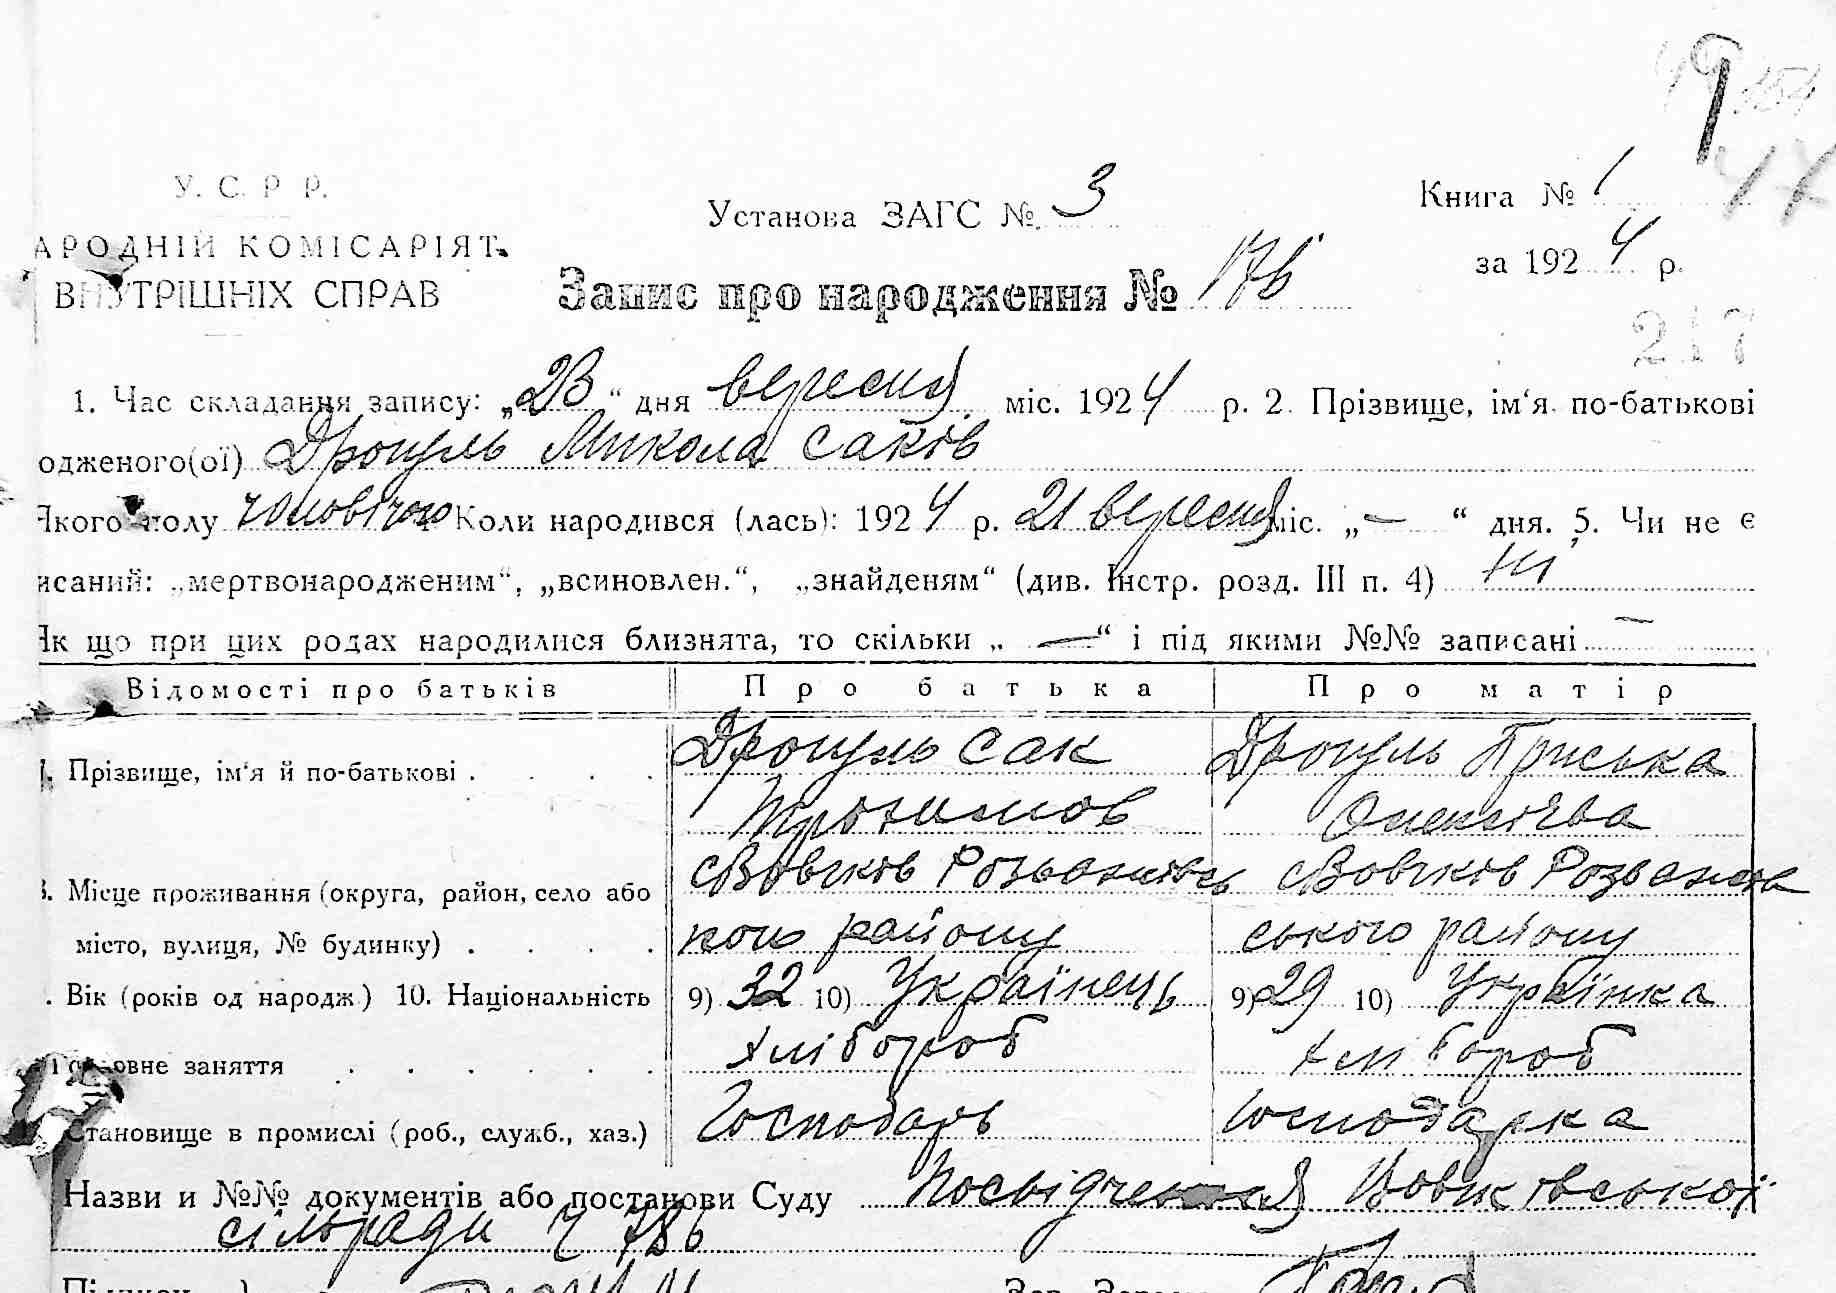 У. С. Р. Р.
АРОДНІЙ КОМІСАРІЯТ
ВНУТРІШНІХ СПРАВ
Установа ЗАГС №. 3
Книга № 1
за 1924 р.
Запис про народження № 176
217
1. Час складання запису: „23“ дня вересня міс. 1924 р. 2. Прізвище, ім‘я по-батькові
одженого(ої) Дрогуль Микола Саків
Якого полу чоловічого Коли народився (лась): 1924 р. 21 вересня міс. „—“ дня. 5. Чи не є
исаний: „мертвонародженим“, „всиновлен.“, „знайденям“ (див. Інстр. розд. III п. 4) ні
Як що при цих родах народилися близнята, то скільки „—“ і під якими №№ записані —
Відомості про батьків Про батька Про матір
Прізвище, ім‘я й по-батькові . . . . Дрогуль Сак Дрогуль Приська
Трохимов Олексієва
Місце проживання (округа, район, село або с Вовчків Розважівсь с Вовчків Розважів
місто, вулиця, № будинку) . . . . кого району ського району
. Вік (років од народж) 10. Національність 9) 32 10) Українець 9) 29 10) Українка
овне заняття . . . . . . Хлібороб Хлібороб
Становище в промислі (роб., служб., хаз.) Господарь Господарка
Назви и №№ документів або постанови Суду Посвідчення Вовчківської
сільради ч 786